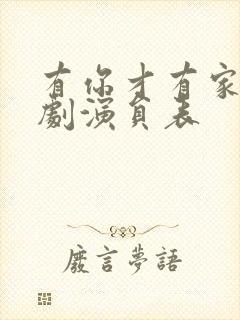 有你才有家
劇演員表
廢言夢語